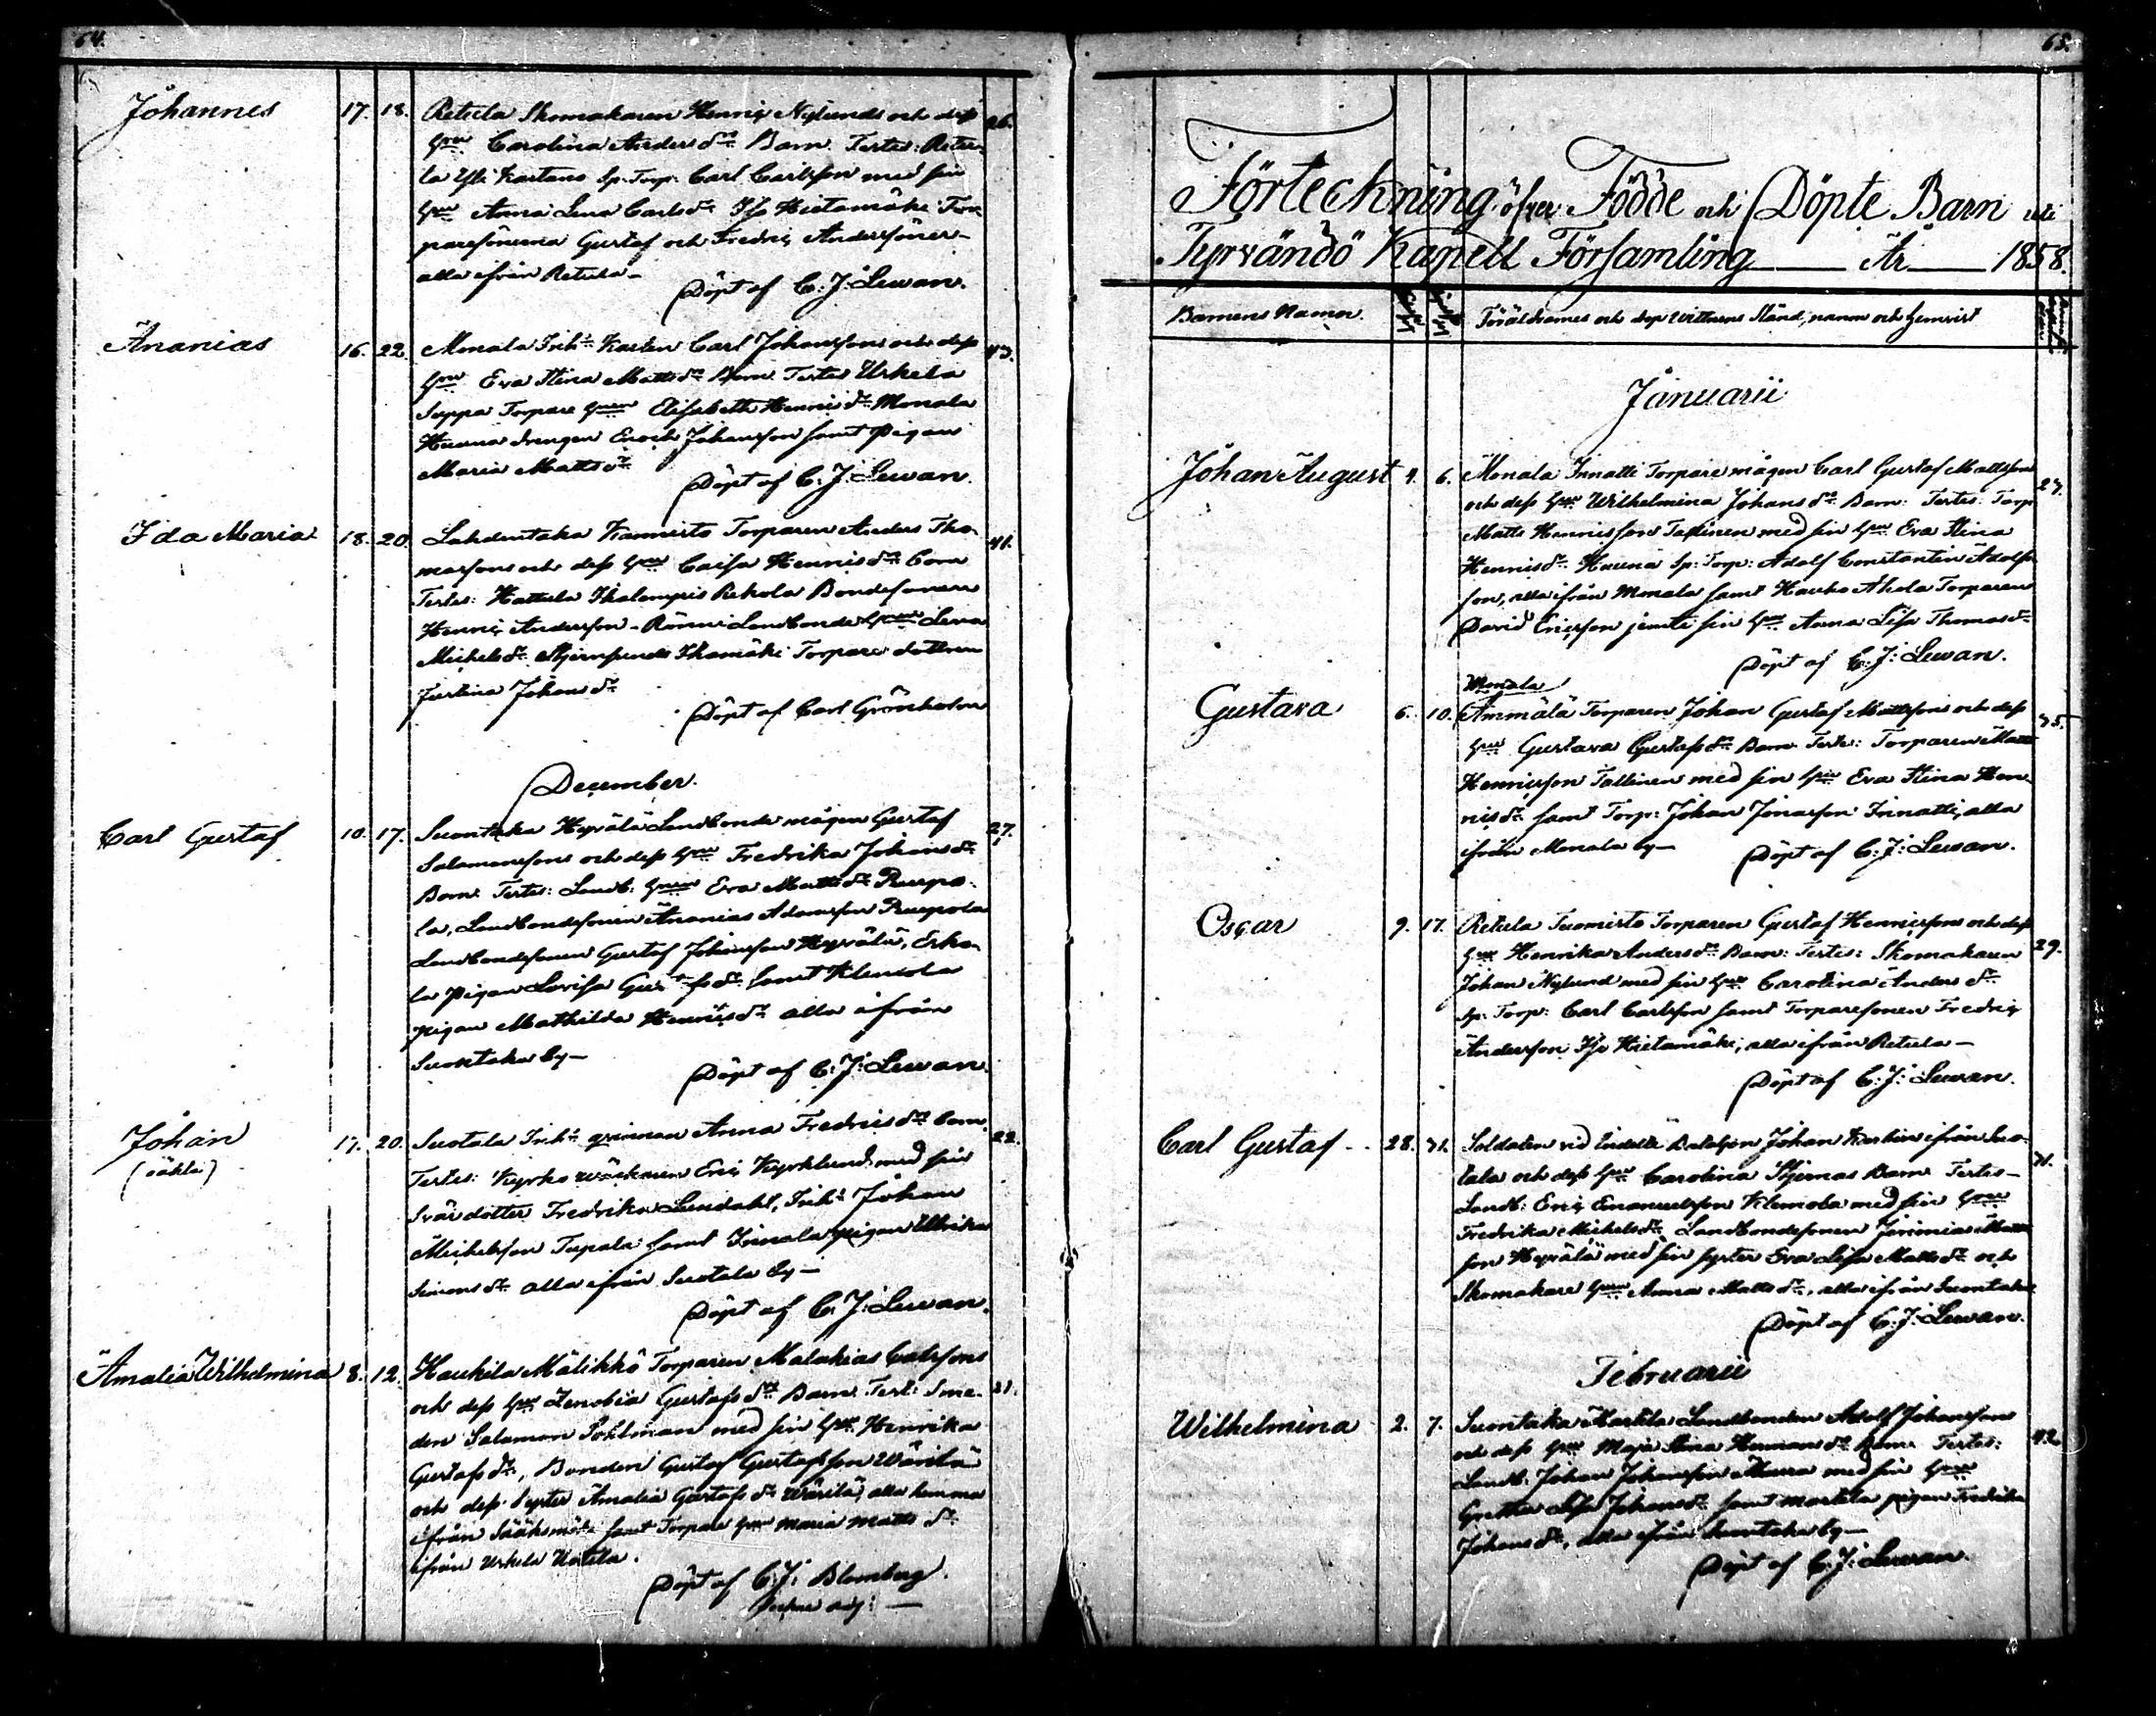 64.
Johannes 17. 18. Retula Skomakaren Henric Nylunds och deß 26.
hru Carolina Anders dr Barn. Testes: Retu-
la Yli Kartano Sp. Torp. Carl Carlsson med sin
hru Anna Lena Carls dr Iso Hietamäki Tor-
paresönerna Gustaf och Fredric Anderssöner
alla ifrån Retula –
Döpt af C. J: Lewan.
Ananias 16. 22. Monala Inhs Karlen Carl Johanssons och deß 43.
hru Eva Stina Matts dr Barn. Testes Urkela
Seppä Torpare hrun Elisabeth Henrics dr Monala
Huuna drengen Enoch Johansson samt Pigan
Maria Matts dr
Döpt af C. J. Lewan.
Ida Maria 18. 20. Lahdentaka Kannisto Torparen Anders Tho- 41.
massons och deß hru Caisa Henrics dr barn
Testes: Hattula Ihalempis Rekola Bondesonen
Henric Andersson – Rönni Landbonde hrun Lena
Michels dr Stjernsunds Ihamäki Torpare dottren
Justina Johans dr
Döpt af Carl Grönholm
December.
Carl Gustaf 10. 17. Suontaka Hyrälä Landbonde mågen Gustaf 27.
Salomonssons och deß hru Fredrika Johans dr
Barn. Testes: Landb: hrun Eva Matts dr Ruupo-
la, Landbondesonen Ananias Adamsson Ruupola
Landbondesonen Gustaf Johansson Hyrälä, Erko-
la pigan Lovisa Gustafs dr samt Klemola
pigan Mathilda Henrics dr alla ifrån
Suontaka by –
Döpt af C: J: Lewan.
Johan 17. 20. Suotala Inhs qvinnan Anna Fredrics dr barn. 22.
(oäkta) Testes: Kyrko wäcktaren Eric Kyrklund med sin
Svärdotter Fredrika Lundahl, Inhs Johan
Michelsson Tupala samt Innala pigan Ullrika
Simons dr alla ifrån Suotala by –
Döpt af C. J: Lewan.
Amalia Wilhelmina 8. 12. Haukila Mälikkö Torparen Malakias Carlssons 31.
och deß hru Zenobia Gustafs dr Barn. Test: Sme-
den Salomon Pohlman med sin hru Henrika
Gustafs dr, Bonden Gustaf Gustafsson Wärilä
och deß Syster Amalia Gustafs dr Wärilä, alla hemma
ifrån Sääksmäki samt Torpare hrun Maria Matts dr
ifrån Urkela
Döpt af C: J: Blomberg.
65.
Förteckning öfver Födde och Döpte Barn uti
Tyrvändö Kapell Församling — År — 1858.
Barnens Namn Föräldrarnes och deß Wittnens Stånd, namn och hemvist
Januarii
Johan August 4. 6. Monala Innatti Torpare mågen Carl Gustaf Mattssons 27.
och deß hru Wilhelmina Johans dr Barn: Testes: Torp.
Matts Henricsson Tallinen med sin hru Eva Stina
Henrics dr Huuna Sp: Torp: Adolf Constantin Adolfs-
son, alla ifrån Monala samt Hauho Ahola Torparen
David Ericsson jemte sin hru Anna Lisa Thomas dr
Döpt af C: J: Lewan.
Monala
Gustava 6. 10. Ammälä Torparen Johan Gustaf Mattssons och deß 35.
hru Gustava Gustafs dr Barn. Testes: Torparen Matts
Henricsson Tallinen med sin hru Eva Stina Hen-
rics dr samt Torp: Johan Jonasson Innatti, alla
ifrån Monala by – Döpt af C: J: Lewan.
Oscar 9. 17. Retula Tuomisto Torparen Gustaf Henricssons och deß 29.
hru Henrika Anders dr Barn: Testes: Skomakaren
Johan Nylund med sin hru Carolina Anders dr
Sp: Torp: Carl Carlsson samt Torparesonen Fredric
Andersson Iso Hietamäki, alla ifrån Retula –
Döpt af C: J: Lewan.
Carl Gustaf 28. 31. Soldaten vid Indelta Bataljon Johan ifrån Suo- 31.
tala och deß hru Carolina Stjernas Barn Testes –
Landb: Eric Emanuelsson Klemola med sin hru
Fredrika Michels dr Landbondesonen Jeremias Matts-
son Hyrälä med sin syster Eva Lisa Matts dr och
Skomakare hrun Anna Matts dr, alla ifrån Suontaka
Döpt af C: J: Lewan.
Februarii
Wilhelmina 2. 7. Suontaka Martila Landbonden Adolf Johanssons 42.
och deß hru Maja Stina Hermans dr Barn. Testes:
Landb. Johan Johansson med sin hru
Gretha Lisa Johans dr samt Martila pigan Fredrika
Johans dr, alla ifrån Suontaka by –
Döpt af C: J: Lewan.